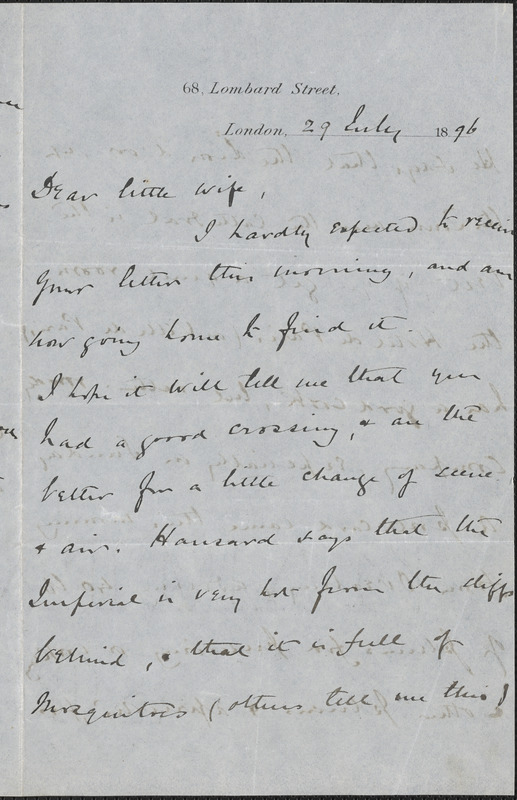 68, Lombard Street.
London, 29 July 1896
Dear little wife,
I hardly expected to receive
your letter this morning, and am
now going home to find it.
I hope it will tell me that you
had a good crossing, & are the
better for a little change of scene
& air. Hansard says that the
Imperial is very hot from the cliffs
behind, & that it is full of
Mosquitoes (others tell me this)